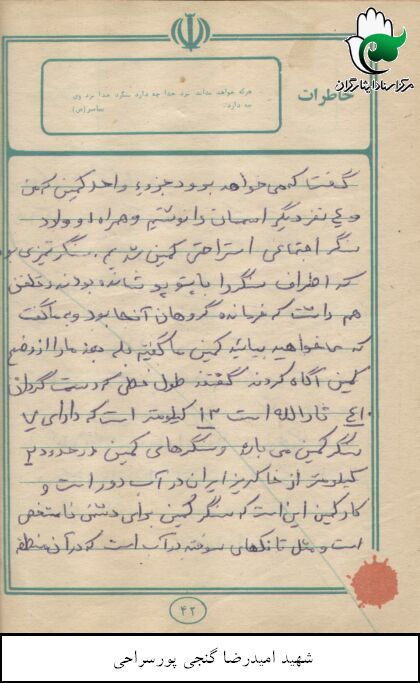 مرکز اسناد ایثارگران
خاطرات
هرکه خواهد بداند نزد خدا چه دارد بنگرد خدا نزد وی
چه دارد.
پیامبر (ص)
گفت که می‌خواهد برود جزوء واحد کمین که من
و نفر دیگر اسمان را نوشتیم و همراه او وارد
سنگر اجتماعی استراحتی کمین شدیم. سنگر تمیزی بود
که اطراف سنگر را با پتو پوشانده بودند و تلفن
هم داشت که فرمانده گروهان آنجا بود و به ما گفت
که می‌خواهید بیائید کمین ما گفتیم بله بعد ما را از وضع
کمین آگاه کردند گفتند طول خطی که دست گردان
۴۱۰ ثارالله است ۱۳ کیلومتر است که دارای ۷
سنگر کمین می‌باشد و سنگرهای کمین در حدود ۲
کیلومتر از خاکریز ایران در آب دور است و
کار کمین این است که سنگر کمین برای دشمن نامشخص
است و مثل تانکهای سوخته در آب است که در آن منطقه
۴۲
شهید امیدرضا گنجی پورسراحی